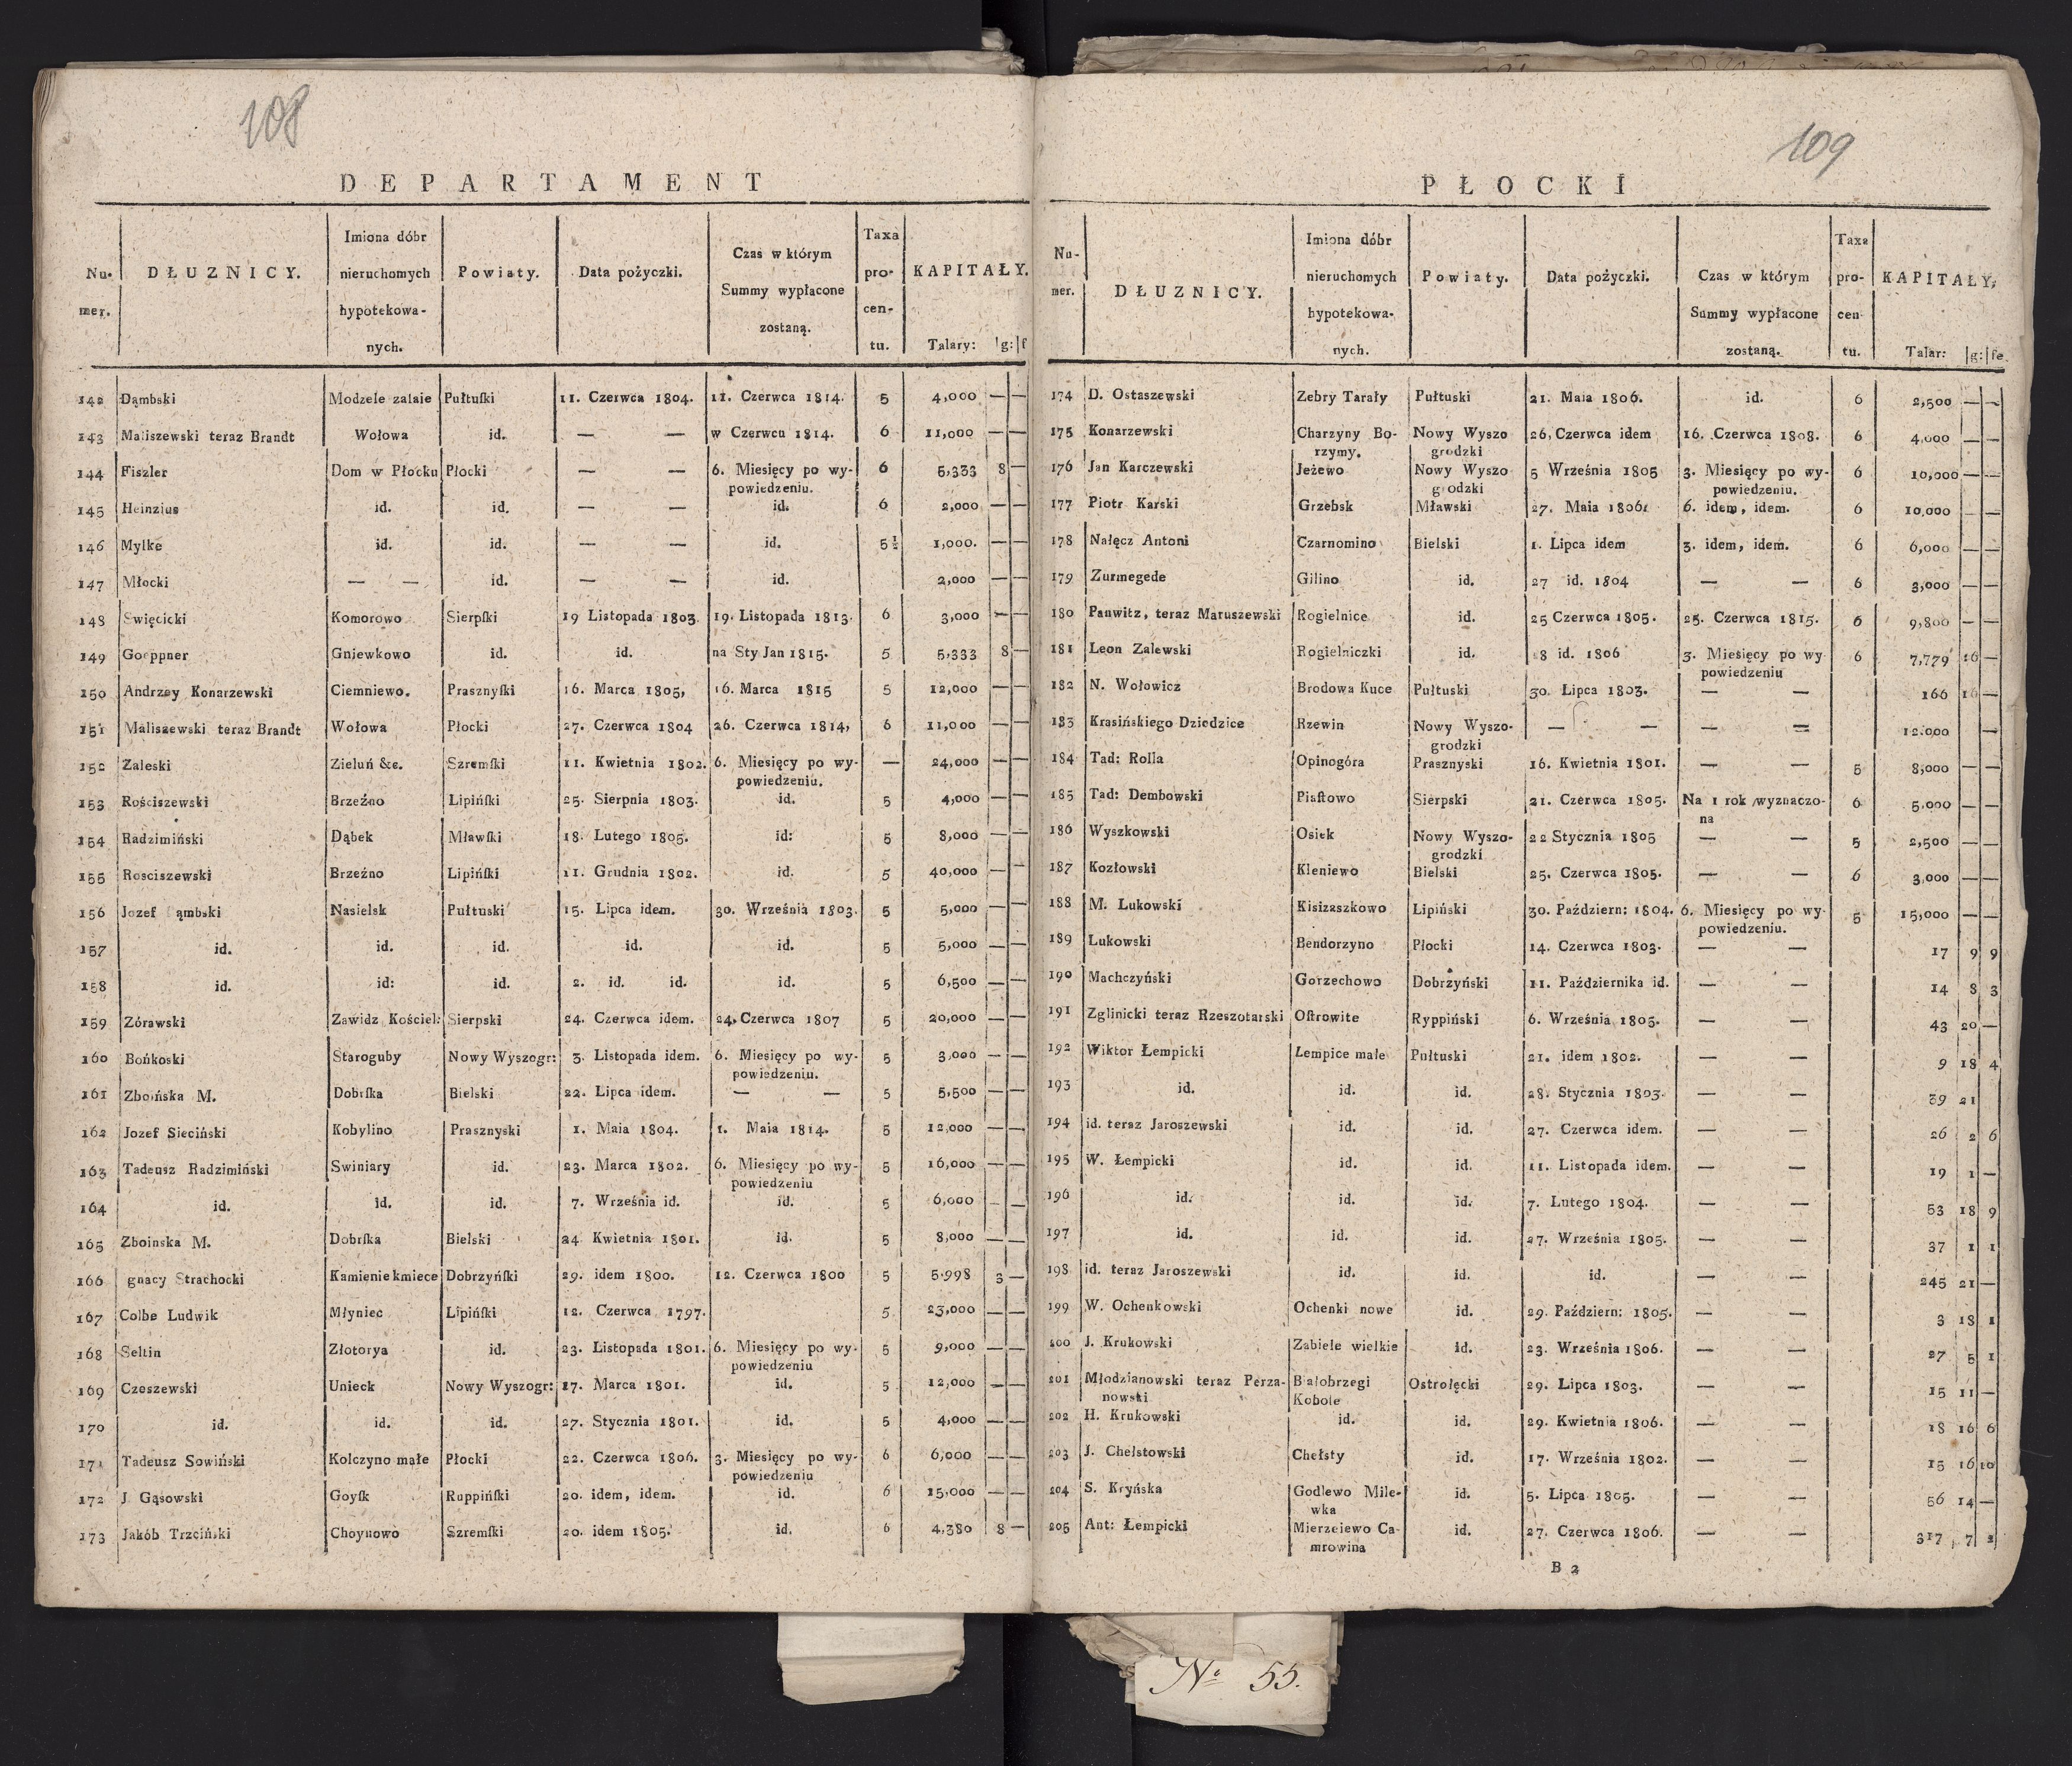 108
DEPARTAMENT
Nu- mer. | DŁUZNICY. | Imiona dóbr nieruchomych hypotekowa- nych. | Powiaty. | Data pożyczki. | Czas w którym Summy wypłacone zostaną. | Taxa pro- cen- tu. | KAPITAŁY. Talary: | g: | f
142 Dąmbski Modzele zalaie Pułtuſki 11. Czerwca 1804. 11. Czerwca 1814. 5 4,000 — —
143 Maliszewski teraz Brandt Wołowa id. — — w Czerwcu 1814. 6 11,000 — —
144 Fiszler Dom w Płocku Płocki — — 6. Miesięcy po wy- 6 5,333 8 —
powiedzeniu.
145 Heinzius id. id. — — id. 6 2,000 — —
146 Mylke id. id. — — id. 5½ 1,000. — —
147 Młocki — — id. — — id. 2,000 — —
148 Swięcicki Komorowo Sierpſki 19 Listopada 1803. 19. Listopada 1813. 6 3,000 — —
149 Goeppner Gniewkowo id. id. na Sty Jan 1815. 5 5,333 8 —
150 Andrzey Konarzewski Ciemniewo. Prasznyſki 16. Marca 1805, 16. Marca 1815 5 12,000 — —
151 Maliszewski teraz Brandt Wołowa Płocki 27. Czerwca 1804 26. Czerwca 1814, 6 11,000 — —
152 Zaleski Zieluń &e. Szremſki 11. Kwietnia 1802. 6. Miesięcy po wy- — 24,000 — —
powiedzeniu.
153 Rościszewski Brzeźno Lipińſki 25. Sierpnia 1803. id. 5 4,000 — —
154 Radzimiński Dąbek Mławſki 18. Lutego 1805. id: 5 8,000 — —
155 Rosciszewski Brzeźno Lipińſki 11. Grudnia 1802. id. 5 40,000 — —
156 Jozef ąmbski Nasielsk Pułtuski 15. Lipca idem. 30. Września 1803. 5 5,000 — —
157 id. id. id. id. id. 5 5,000 — —
158 id. id: id. 2. id. id. id. 5 6,500 — —
159 Zórawski Zawidz Kościel: Sierpski 24. Czerwca idem. 24. Czerwca 1807 5 20,000 — —
160 Bońkoski Staroguby Nowy Wyszogr: 3. Listopada idem. 6. Miesięcy po wy- 5 3,000 — —
powiedzeniu.
161 Zboińska M. Dobrſka Bielski 22. Lipca idem. — — 5 5,500 — —
162 Jozef Sieciński Kobylino Prasznyski 1. Maia 1804. 1. Maia 1814. 5 12,000 — —
163 Tadeusz Radzimiński Swiniary id. 23. Marca 1802. 6. Miesięcy po wy- 5 16,000 — —
powiedzeniu
164 id. id. id. 7. Września id. id. 5 6,000 — —
165 Zboinska M. Dobrſka Bielski 24 Kwietnia 1801. id. 5 8,000 — —
166 gnacy Strachocki Kamienie kmiece Dobrzyńſki 29. idem 1800. 12. Czerwca 1800 5 5.998 3 —
167 Colbe Ludwik Młyniec Lipińſki 12. Czerwca 1797. 5 23,000 — —
168 Seltin Złotorya id. 23. Listopada 1801. 6. Miesięcy po wy- 5 9,000 — —
powiedzeniu
169 Czeszewski Unieck Nowy Wyszogr: 27. Marca 1801. id. 5 12,000 — —
170 id. id. id. 27. Stycznia 1801. id. 5 4,000 — —
171 Tadeusz Sowiński Kolczyno małe Płocki 22. Czerwca 1806. 3. Miesięcy po wy- 6 6,000 — —
powiedzeniu
172 J Gąsowski Goyſk Ruppińſki 20. idem, idem. id. 6 15,000 — —
173 Jakób Trzciński Choynowo Szremſki 20. idem 1805. id. 6 4,380 8 —
109
PŁOCKI
Nu- mer. | DŁUZNICY. | Imiona dóbr nieruchomych hypotekowa- nych. | Powiaty. | Data pożyczki. | Czas w którym Summy wypłacone zostaną. | Taxa pro- cen tu. | KAPITAŁY, Talar: | g: | fe
174 D. Ostaszewski Zebry Tarały Pułtuski 21. Maia 1806. id. 6 2,500 — —
175 Konarzewski Charzyny Bo- Nowy Wyszo 26, Czerwca idem 16. Czerwca 1808. 6 4,000 — —
rzymy. grodzki
176 Jan Karczewski Jeżewo Nowy Wyszo 5 Września 1805 3. Miesięcy po wy- 6 10,000 — —
grodzki powiedzeniu.
177 Piotr Karski Grzebsk Mławski 27. Maia 1806. 6. idem, idem. 6 10,000 — —
178 Nałęcz Antoni Czarnomino Bielski 1. Lipca idem 3. idem, idem. 6 6,000 — —
179 Zurmegede Gilino id. 27 id. 1804 — — 6 3,000 — —
180 Panwitz, teraz Maruszewski Rogielnice id. 25 Czerwca 1805. 25. Czerwca 1815. 6 9,800 — —
181 Leon Zalewski Rogielniczki id. 8 id. 1806 3. Miesięcy po wy 6 7,779 16 —
powiedzeniu
182 N. Wołowicz Brodowa Kuce Pułtuski 30. Lipca 1803. — — 166 16 —
183 Krasińskiego Dziedzice Rzewin Nowy Wyszo- — — — — 12.000 —
grodzki
184 Tad: Rolla Opinogóra Prasznyski 16. Kwietnia 1801. — — 5 8,000 — —
185 Tad: Dembowski Piaſtowo Sierpski 21. Czerwca 1805. Na 1 rok wyznaczo- 6 5,000 — —
na
186 Wyszkowski Osiek Nowy Wyszo- 22 Stycznia 1805 — — 5 2,500 — —
grodzki
187 Kozłowski Kleniewo Bielski 25. Czerwca 1805. — — 6 3,000 — —
188 M. Lukowski Kisizaszkowo Lipiński 30. Październ: 1804. 6. Miesięcy po wy- 5 15,000 — —
powiedzeniu.
189 Lukowski Bendorzyno Płocki 14. Czerwca 1803. — — 17 9 9
190 Machczyński Gorzechowo Dobrżyński 11. Października id. — — 14 8 3
191 Zglinicki teraz Rzeszotarski Oſtrowite Ryppiński 6. Września 1805. — — 43 20 —
192 Wiktor Łempicki Łempice małe Pułtuski 21. idem 1802. — — 9 18 4
193 id. id. id. 28. Stycznia 1803. — — 39 21
194 id. teraz Jaroszewski id. id. 27. Czerwca idem. — — 26 2 6
195 W. Łempicki id. id. 11. Listopada idem. — — 19 1 —
196 id. id. id. 7. Lutego 1804. — — 53 18 9
197 id. id. id. 27. Września 1805. — — 37 1 1
198 id. teraz Jaroszewski id. id. id. — — 245 21 —
199 W. Ochenkowski Ochenki nowe id. 29. Październ: 1805. — — 3 18 1
200 J. Krukowski Zabiele wielkie id. 23. Września 1806. — — 27 5 1
201 Młodzianowski teraz Perza- Białobrzegi Ostrołęcki 29. Lipca 1803. — — 15 11 —
nowski Kobole
202 H. Krukowski id. id. 29. Kwietnia 1806. — — 18 16 6
203 J. Chełstowski Chełsty id. 17. Września 1802. — — 15 16 10
204 S. Kryńska Godlewo Mile- id. 5. Lipca 1805. — — 56 14 —
wka
205 Ant: Łempicki Mierzeiewo Ca- id. 27. Czerwca 1806. — — 317 7 2
mrowina
B 2
No 55.